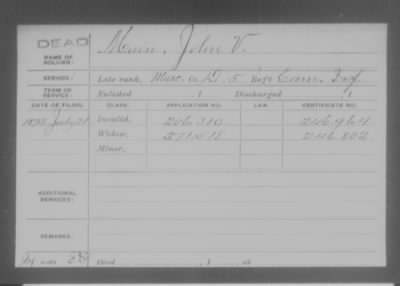 DEAD
NAME OF SOLDIER: Main, John V.
SERVICE: Late rank, Mus. Co. D, 5 Reg't Conn. Inf.
TERM OF SERVICE: Enlisted , 1 Discharged , 1
DATE OF FILING. CLASS. APPLICATION NO. LAW. CERTIFICATE NO.
1875 July 21 Invalid, 206.310 246.964
Widow, 246.802
Minor,
ADDITIONAL SERVICES:
REMARKS:
Died , 1 , at